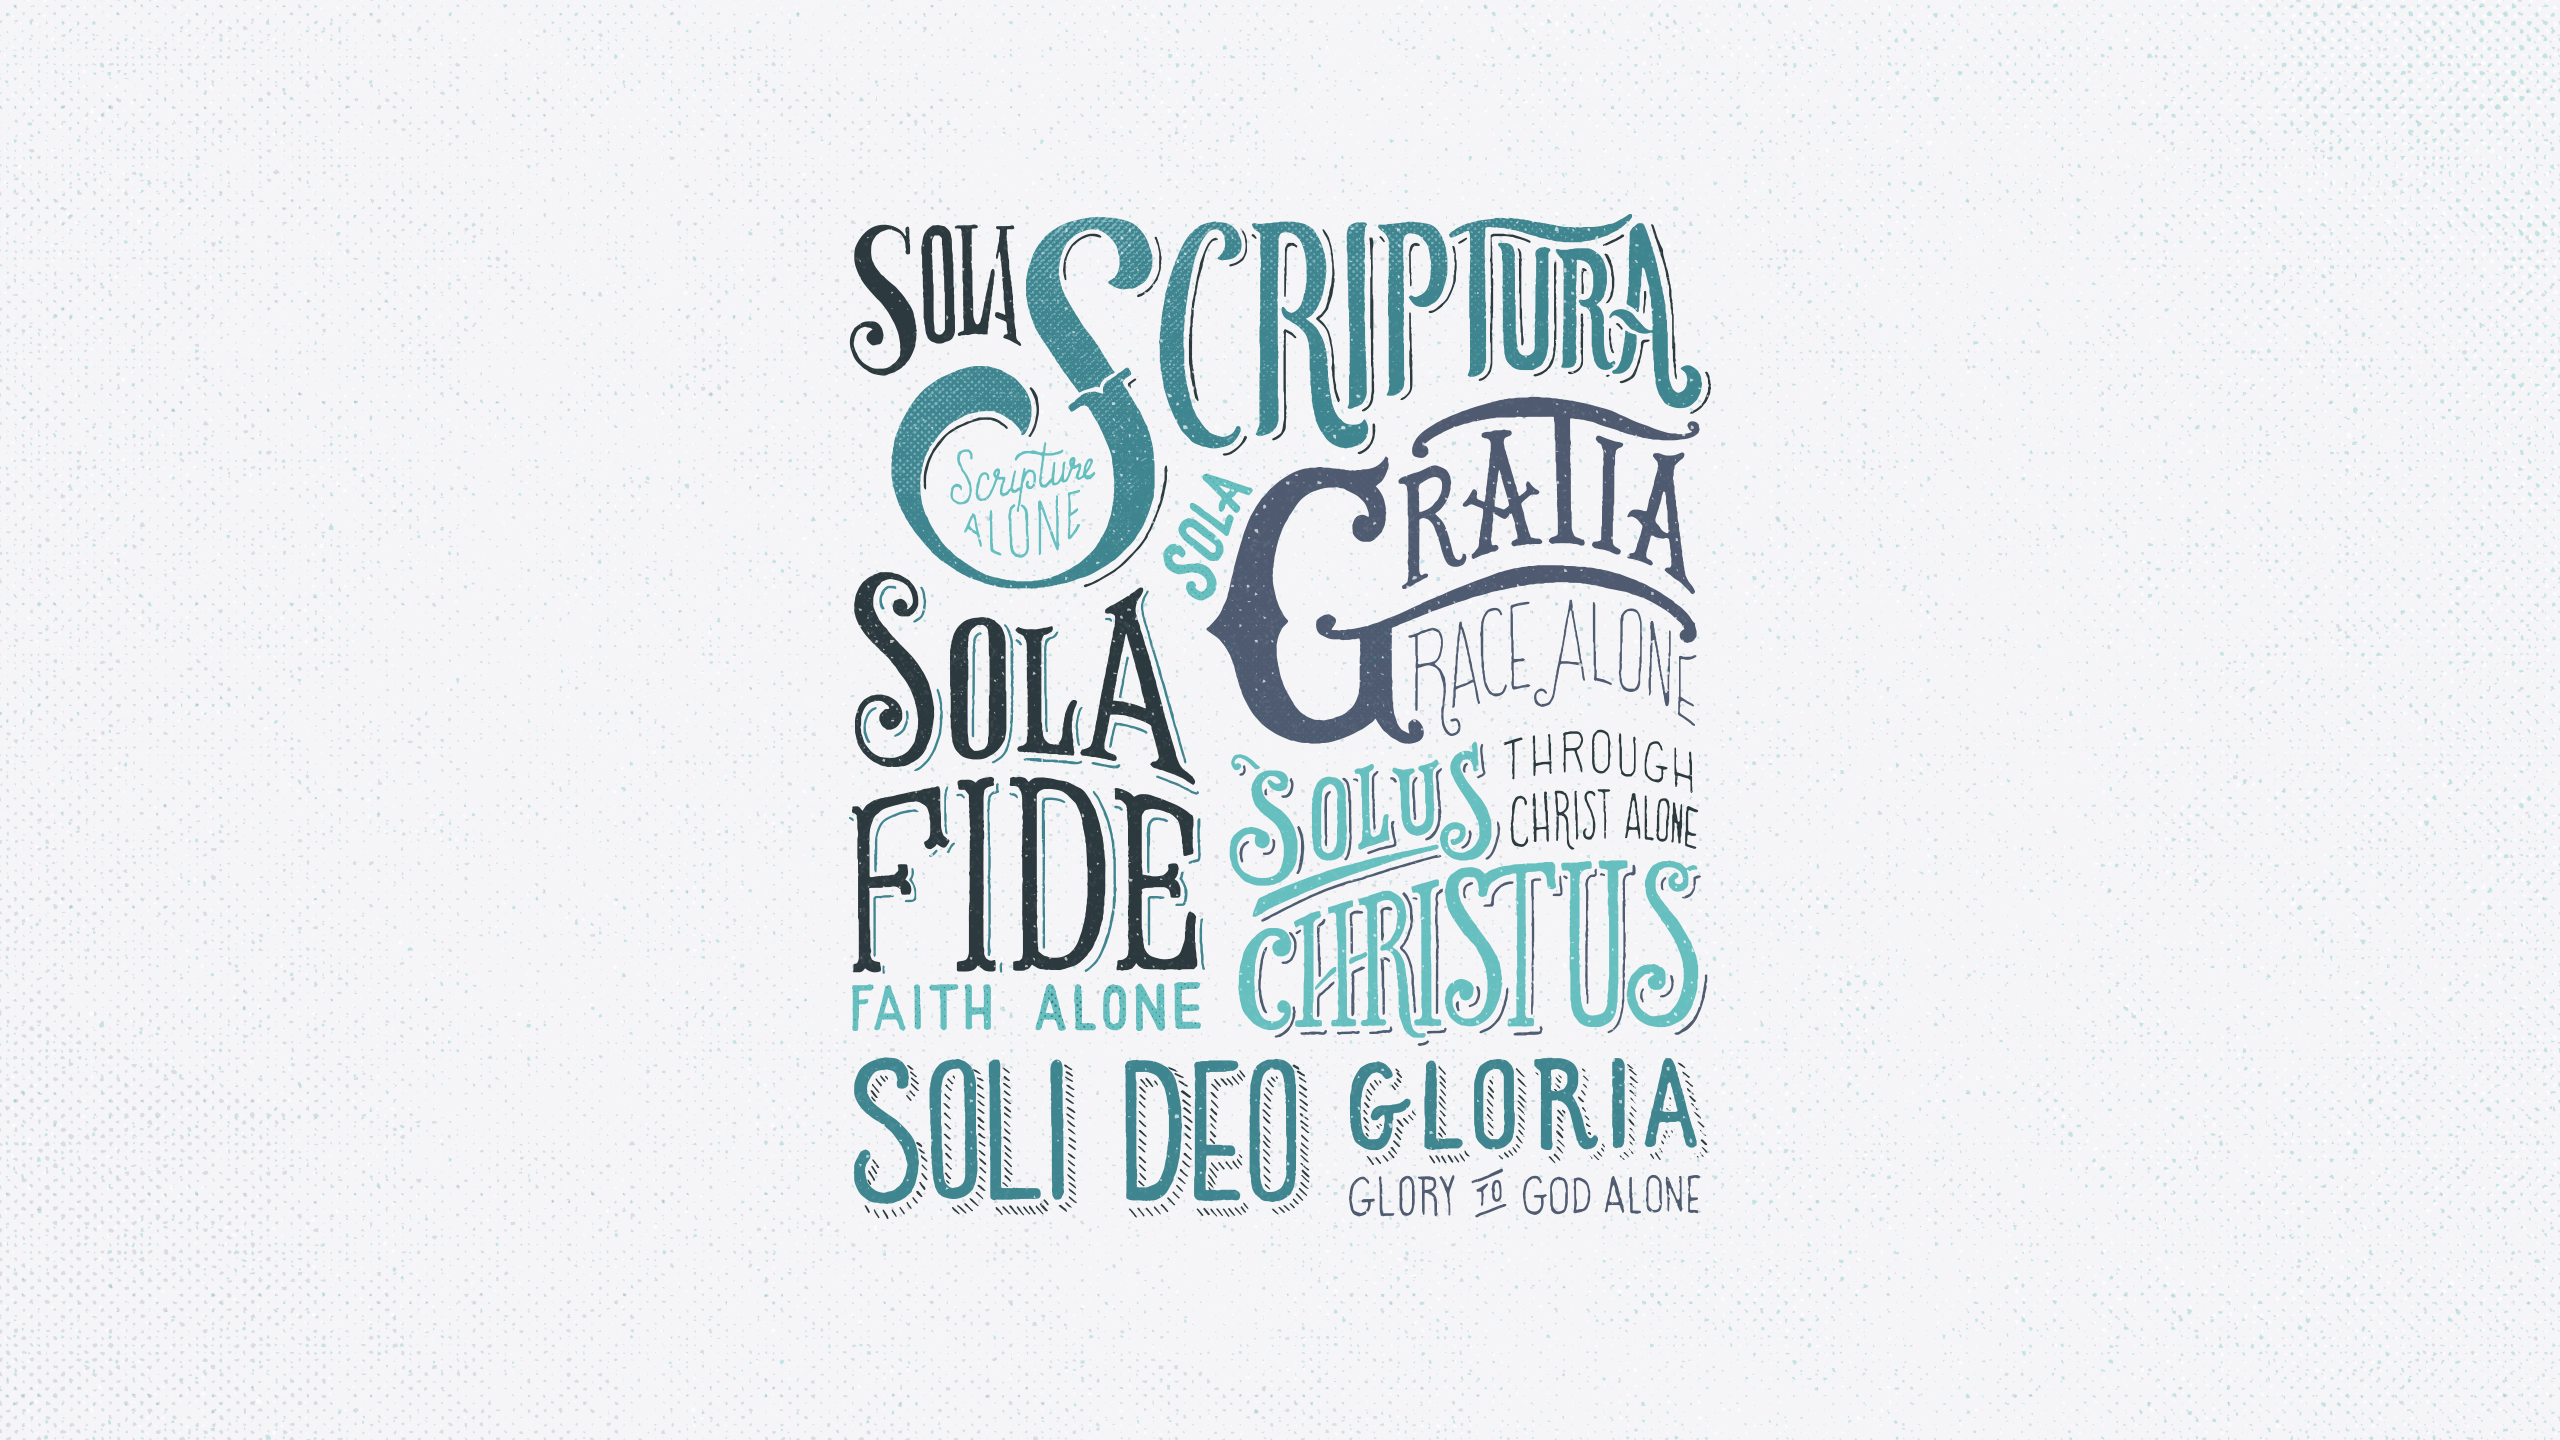 SOLA SCRIPTURA
Scripture
ALONE
SOLA
GRATIA
GRACE ALONE
SOLA
FIDE
FAITH ALONE
SOLUS
CHRISTUS
THROUGH
CHRIST ALONE
SOLI DEO GLORIA
GLORY TO GOD ALONE